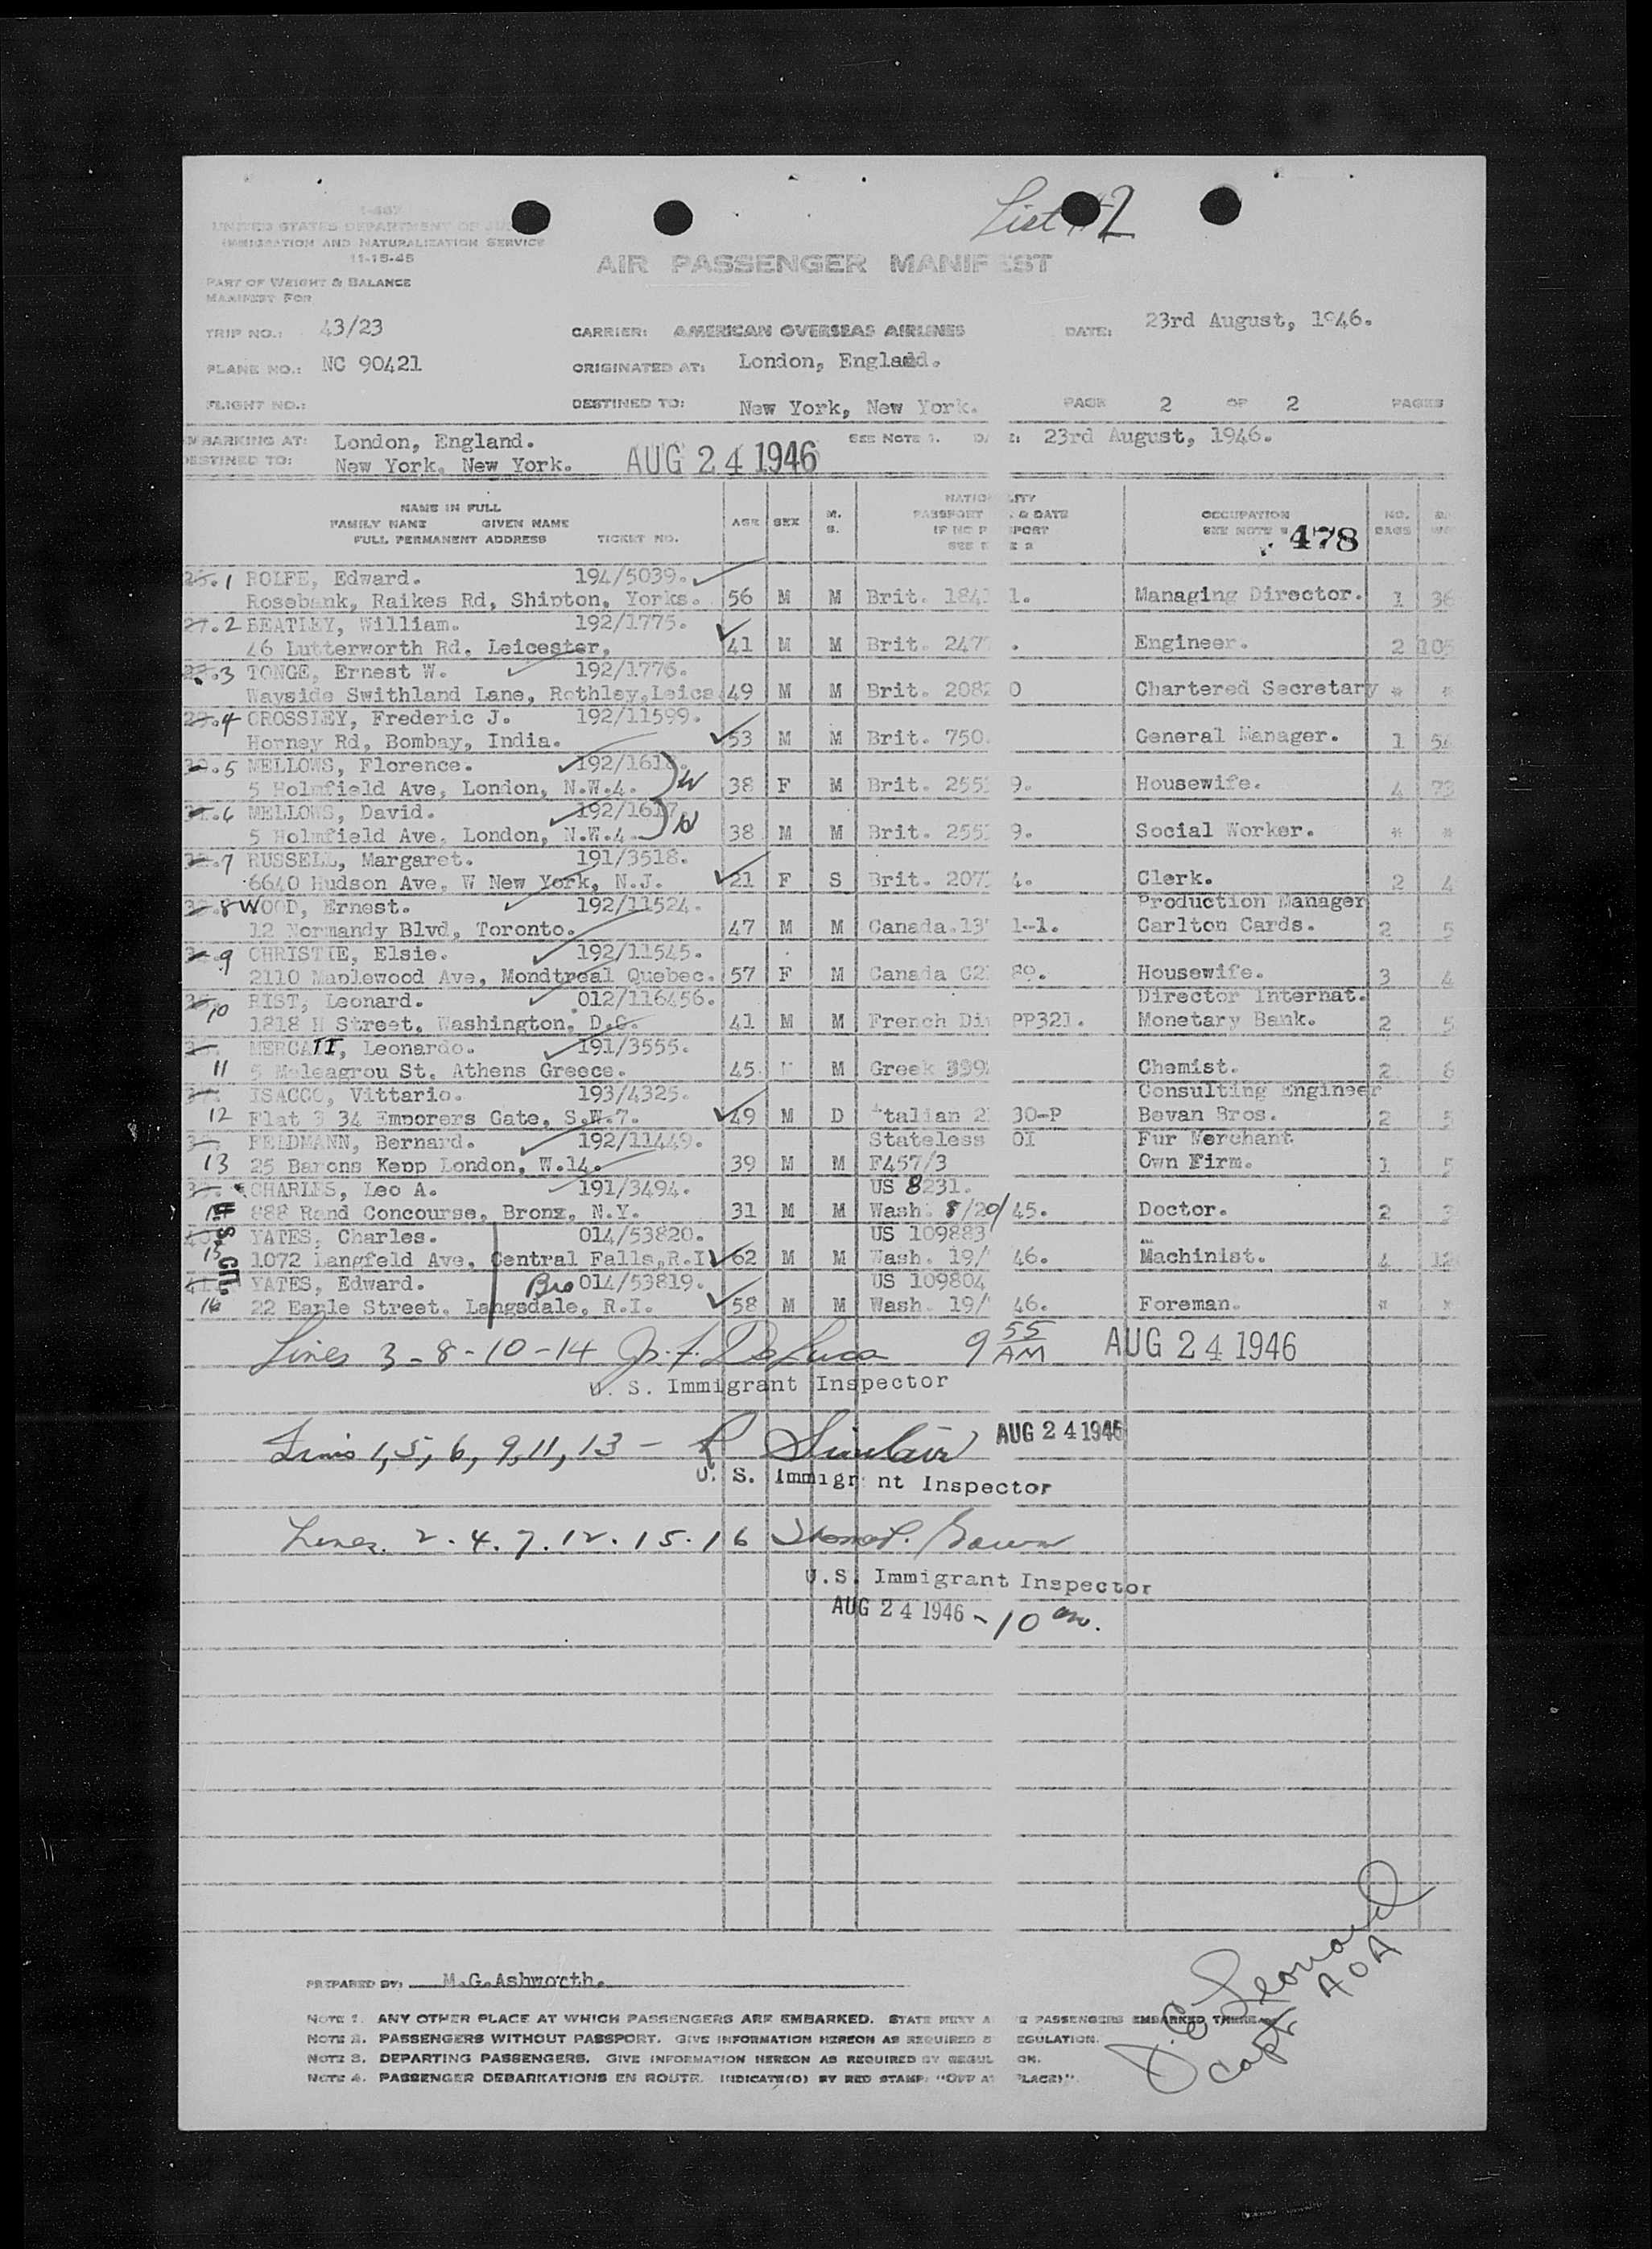 List #2
I-467
UNITED STATES DEPARTMENT OF JU
IMMIGRATION AND NATURALIZATION SERVICE
11-15-45
AIR PASSENGER MANIF EST
PART OF WEIGHT & BALANCE
MANIFEST FOR
TRIP NO.: 43/23 CARRIER: AMERICAN OVERSEAS AIRLINES DATE: 23rd August, 1946.
PLANE NO.: NC 90421 ORIGINATED AT: London, England.
FLIGHT NO.: DESTINED TO: New York, New York. PAGE 2 OF 2 PAGES
EMBARKING AT: London, England. SEE NOTE 1. DATE: 23rd August, 1946.
DESTINED TO: New York, New York. AUG 24 1946
NAME IN FULL
FAMILY NAME GIVEN NAME
FULL PERMANENT ADDRESS TICKET NO. AGE SEX M. S. NATIONALITY PASSPORT & DATE OCCUPATION NO. BAGS
478
1 ROLFE, Edward. 194/5039.
Rosebank, Raikes Rd, Shipton, Yorks. 56 M M Brit. 184 1. Managing Director. 1 36
2 BEATLEY, William. 192/1775.
46 Lutterworth Rd, Leicester, 41 M M Brit. 247 . Engineer. 2 105
3 TONGE, Ernest W. 192/1776.
Wayside Swithland Lane, Rothley,Leics 49 M M Brit. 2082 0 Chartered Secretary * *
4 CROSSLEY, Frederic J. 192/11599.
Horney Rd, Bombay, India. 53 M M Brit. 750 General Manager. 1 54
5 MELLOWS, Florence. 192/1618.
5 Holmfield Ave, London, N.W.4. W 38 F M Brit. 255 9. Housewife. 4 73
6 MELLOWS, David. 192/1617.
5 Holmfield Ave, London, N.W.4. 38 M M Brit. 255 9. Social Worker. * *
7 RUSSELL, Margaret. 191/3518.
6640 Hudson Ave, W New York, N.J. 21 F S Brit. 207 4. Clerk. 2 4
8 WOOD, Ernest. 192/11524. Production Manager
12 Normandy Blvd, Toronto. 47 M M Canada.13 1-1. Carlton Cards. 2 5
9 CHRISTIE, Elsie. 192/11545.
2110 Maplewood Ave, Mondtreal Quebec. 57 F M Canada C2 89. Housewife. 3 4
10 RIST, Leonard. 012/116456. Director Internat.
1818 H Street, Washington, D.C. 41 M M French Di PP321. Monetary Bank. 2 5
11 MERCATI, Leonardo. 191/3555.
5 Meleagrou St. Athens Greece. 45 M M Greek 339 Chemist. 2 6
12 ISACCO, Vittario. 193/4325. Consulting Engineer
Flat 3 34 Emporers Gate, S.W.7. 49 M D Italian 2 30-P Bevan Bros. 2 5
13 FELDMANN, Bernard. 192/11449. Stateless OI Fur Merchant
25 Barons Kepp London, W.14. 39 M M F457/3 Own Firm. 1 5
14 CHARLES, Leo A. 191/3494. US 8231.
888 Rand Concourse, Bronx, N.Y. 31 M M Wash. 8/20/45. Doctor. 2 3
15 YATES, Charles. 014/53820. US 109883
1072 Langfeld Ave, Central Falls,R.I 62 M M Wash. 19/ 46. Machinist. 4 12
16 YATES, Edward. Bro 014/53819. US 109804
22 Earle Street, Langsdale, R.I. 58 M M Wash. 19/ 46. Foreman. * *
U S CIT
Lines 3-8-10-14 Jos. F. DeLuca 9 55 AM AUG 24 1946
U. S. Immigrant Inspector
Lines 1, 5, 6, 9, 11, 13 - R Sinclair AUG 24 1946
U. S. Immigr nt Inspector
Lines. 2. 4. 7. 12. 15. 16
U.S. Immigrant Inspector
AUG 24 1946 - 10 am.
J. E. Leonard
Capt AOA
PREPARED BY: M.G.Ashworth.
NOTE 1. ANY OTHER PLACE AT WHICH PASSENGERS ARE EMBARKED. STATE NEXT A E PASSENGERS EMBARKED THEREAT
NOTE 2. PASSENGERS WITHOUT PASSPORT. GIVE INFORMATION HEREON AS REQUIRED B EGULATION.
NOTE 3. DEPARTING PASSENGERS. GIVE INFORMATION HEREON AS REQUIRED BY REGUL ON.
NOTE 4. PASSENGER DEBARKATIONS EN ROUTE. INDICATE(D) BY RED STAMP: "OFF AT PLACE)".